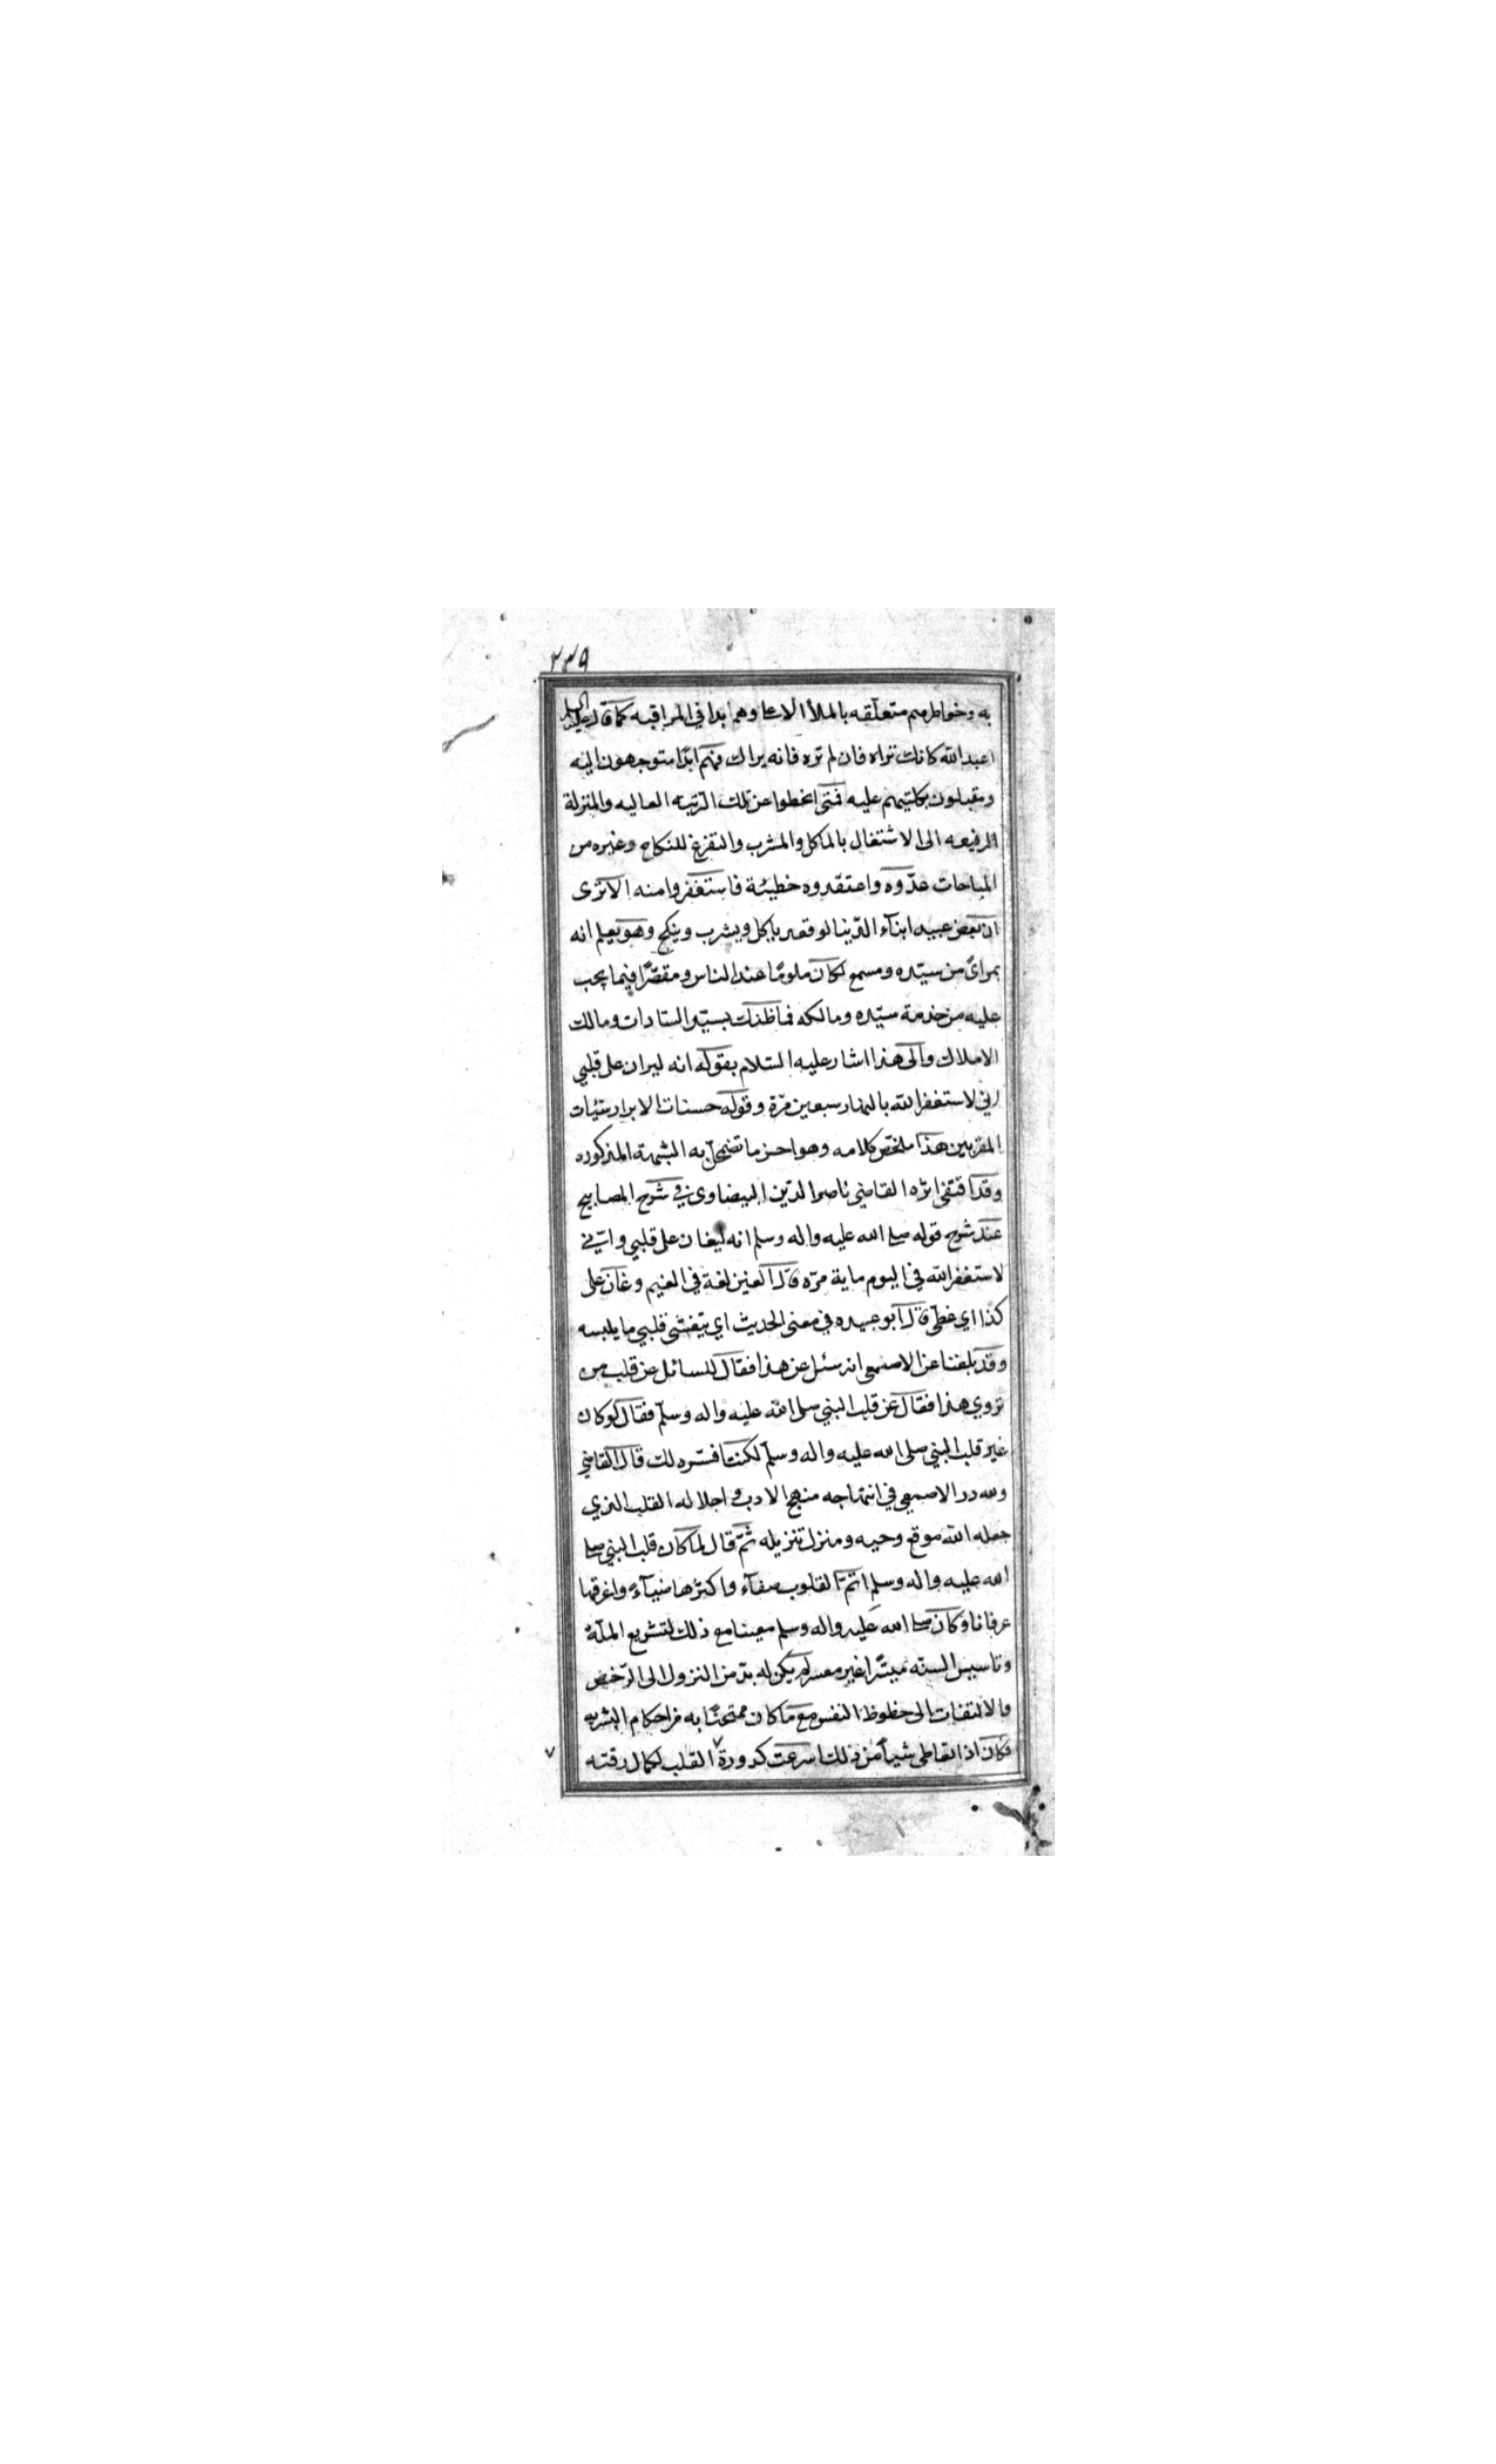 ٢٣٩
به وخواطرهم متعلّقه بالملأ الاعلى وهم ابدا في المراقبه كما قال عليه السلم
اعبد الله كانك تراه فان لم تره فانه يراك فهم ابدًا متوجهون اليه
ومقبلون بكليتهم عليه فمتى انحطوا عن تلك الرّتبه العاليه والمنزلة
الرفيعه الى الاشتغال بالماكل والمشرب والتفرغ للنكاح وغيره من
المباحات عدّوه واعتقدوه خطيئة فاستغفروا منه الا ترى
ان بعض عبيد ابناء الدّنيا لو قعد ياكل ويشرب وينكح وهو يعلم انه
بمراىً من سيّده ومسمع لكان ملومًا عند الناس ومقصّرًا فيما يجب
عليه من خدمة سيّده ومالكه فما ظنك بسيّد السّادات ومالك
الاملاك والى هذا اشار عليه السّلام بقوله انه ليران على قلبي
اني لاستغفر الله بالنهار سبعين مرّة وقوله حسنات الابرار سيّئات
المقربين هذا ملخّص كلامه وهو احسن ما تضمحلّ به الشبهة المذكوره
وقد اقتفى اثره القاضي ناصر الدّين البيضاوي في شرح المصابيح
عند شرح قوله صلى الله عليه واله وسلم انه ليغان على قلبي واني
لاستغفر الله في اليوم ماية مرّه قال الغين لغة في الغيم وغان على
كذا اي غطّى قال ابو عبيده في معنى الحديث اي يتغشى قلبي ما يلبسه
وقد بلغنا عن الاصمعي انه سئل عن هذا فقال للسائل عن قلب من
تروي هذا فقال عن قلب النبي صلى الله عليه واله وسلّم فقال لو كان
غير قلب النبي صلى الله عليه واله وسلّم لكنت افسّره لك قال القاضي
ولله در الاصمعي في انتهاجه منهج الادب واجلاله القلب الذي
جعله الله موقع وحيه ومنزل تنزيله ثمّ قال لما كان قلب النبي صلى
الله عليه واله وسلم اتمّ القلوب صفآء واكثرها ضيآءً واعرقها
عرفانا وكان صلى الله عليه واله وسلم معينا مع ذلك لتشريع الملّة
وتاسيس السنه ميسّرًا غير معسر لم يكن له بدّ من النزول الى الرّخص
والالتفات الى حظوظ النفس مع ما كان ممتحنًا به من احكام البشريه
فكان اذا تعاطى شيأً من ذلك اسرعت كدورة القلب لكمال رقته